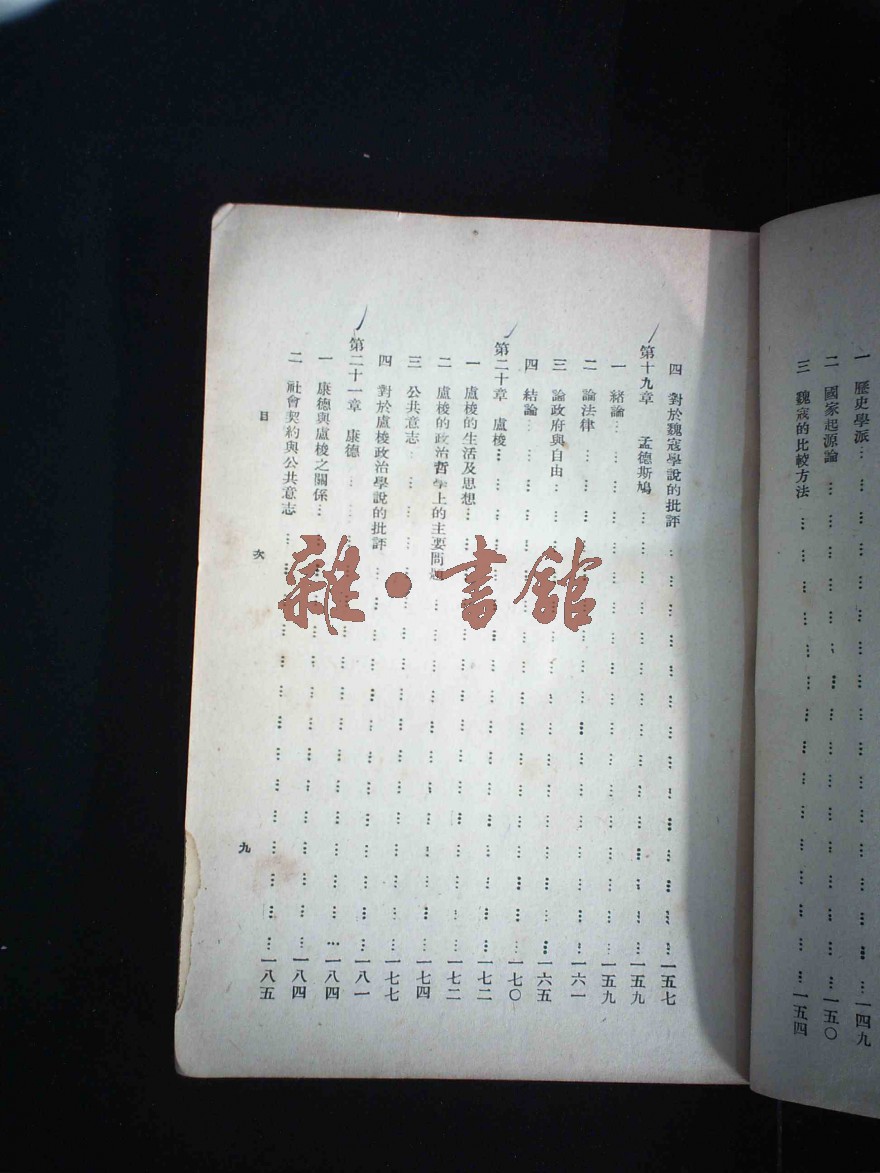 一 歷史學派……一四九
二 國家起源論……一五〇
三 魏寇的比較方法……一五四
四 對於魏寇學說的批評……一五七
第十九章 孟德斯鳩……一五九
一 緒論……一五九
二 論法律……一六一
三 論政府與自由……一六五
四 結論……一七〇
第二十章 盧梭……一七二
一 盧梭的生活及思想……一七二
二 盧梭的政治哲學上的主要問題……一七四
三 公共意志……一七七
四 對於盧梭政治學說的批評……一八一
第二十一章 康德……一八四
一 康德與盧梭之關係……一八四
二 社會契約與公共意志……一八五
目 次
九
雜·書館